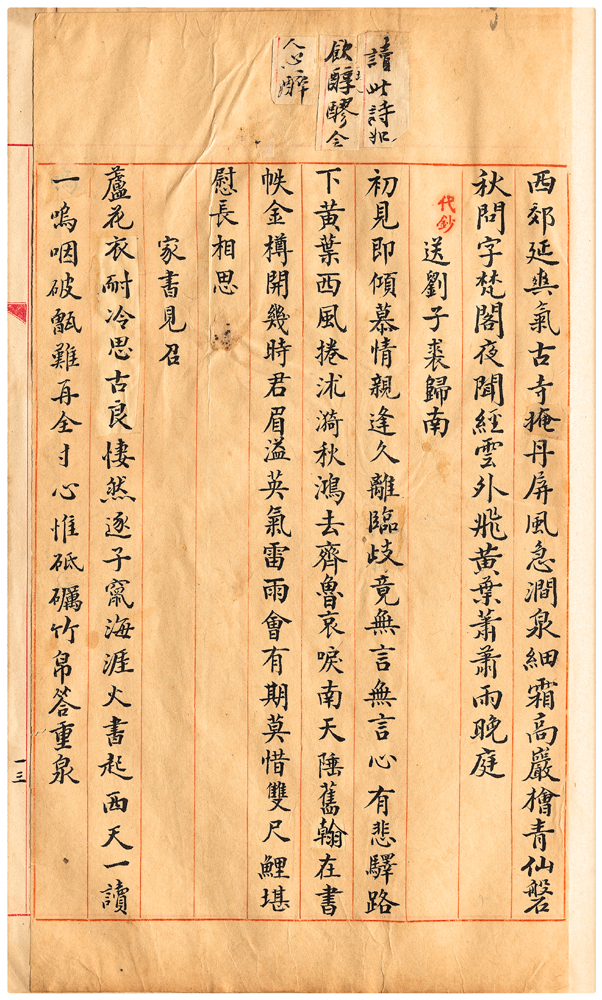 讀此詩如
飲醇醪令
人心醉
西郊延爽氣古寺掩丹屏風急澗泉細霜高巖檜青仙磐
秋問字梵閣夜聞經雲外飛黃葉蕭蕭雨晚庭
代鈔
送劉子裘歸南
初見即傾慕情親逢久離臨歧竟無言無言心有悲驛路
下黃葉西風捲沭漪秋鴻去齊魯哀唳南天陲舊翰在書
帙金樽開幾時君眉溢英氣雷雨會有期莫惜雙尺鯉堪
慰長相思
家書見召
蘆花衣耐冷思古良悽然逐子竄海涯火書起西天一讀
一嗚咽破甑難再全寸心惟砥礪竹帛答重泉
一三